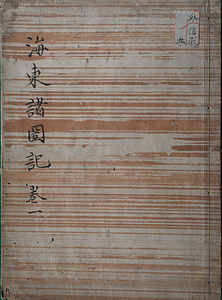 海東諸國記 卷一